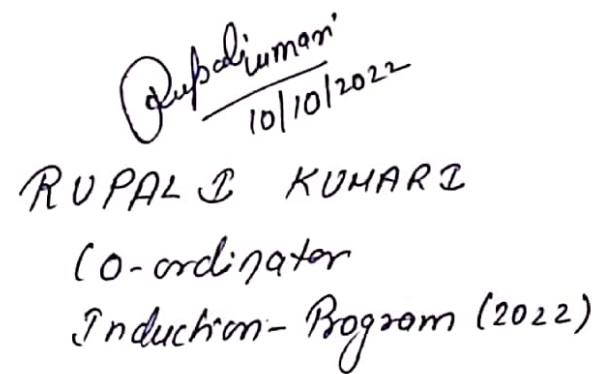 Rupali Kumari
10/10/2022
RUPALI KUMARI
Co-ordinator
Induction- Program (2022)